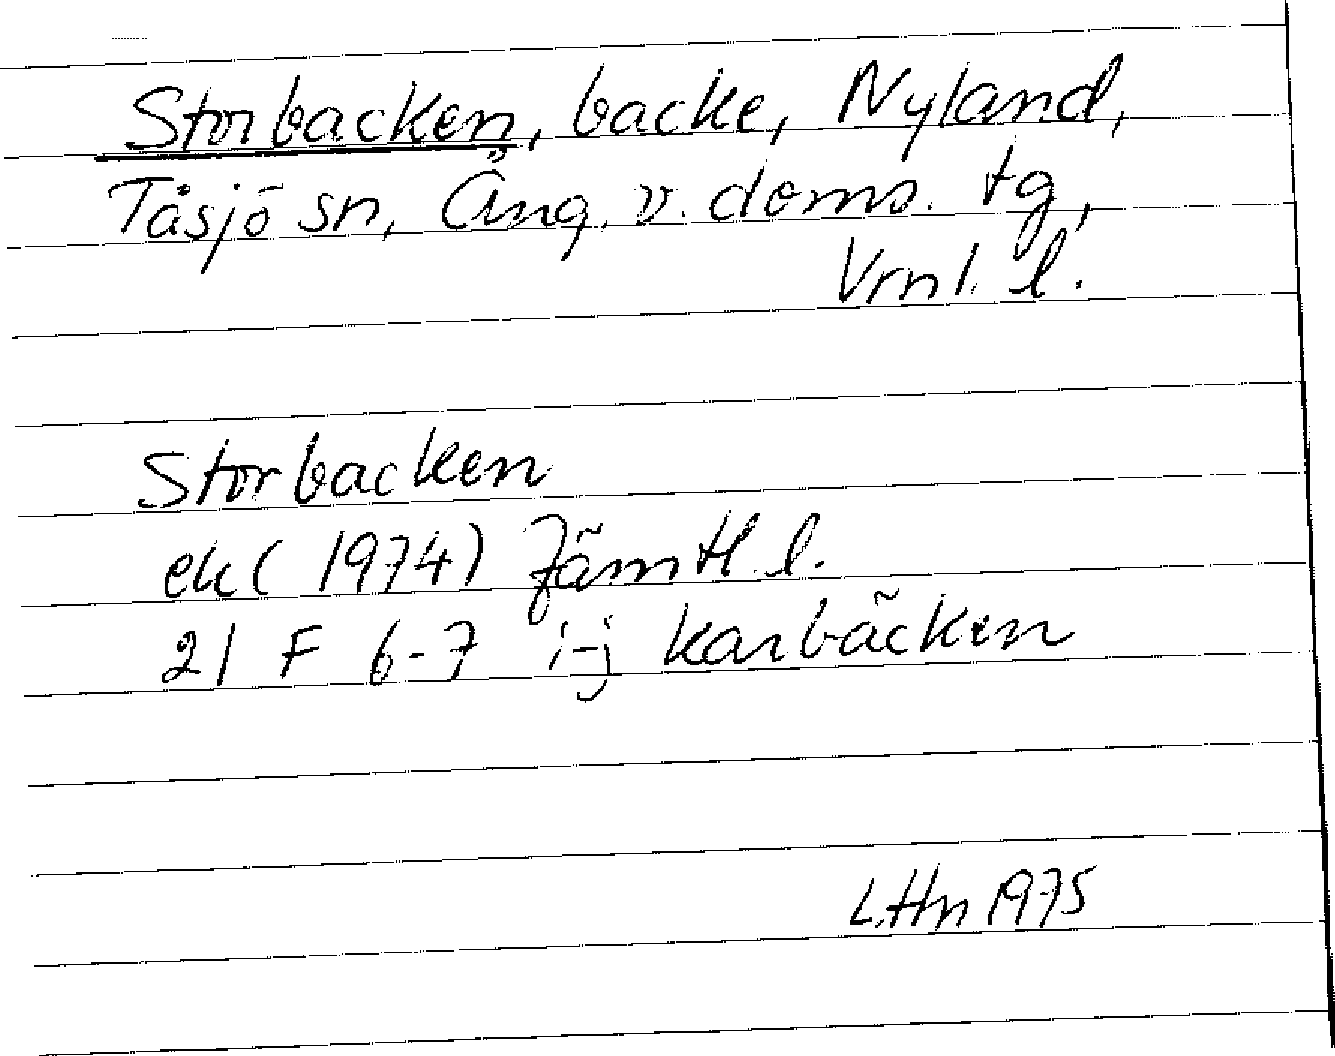 Storbacken, backe, Nyland,
Tåsjö sn, Ång. v. doms. tg,
Vrnl. l.
Storbacken
ek (1974) Jämtl. l.
21 F 6-7 i-j Karbäcken
L.Hn 1975